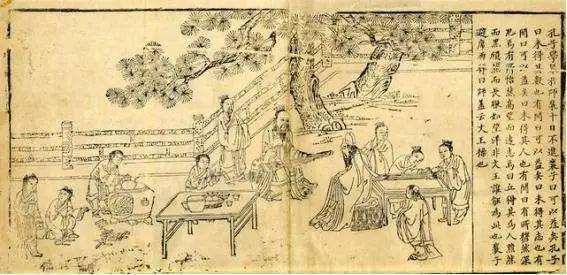 孔子學琴於師襄十日不進襄子曰可以益矣孔子
曰未得其數也有間曰可以益矣曰未得其志也有
間曰可以益矣曰未得其人也有間曰有所穆然深
思焉有所怡然高望而遠志焉曰丘得其為人黯然
而黑頎然而長眼如望洋非文王誰能為此也襄子
避席再拜曰師蓋云文王操也